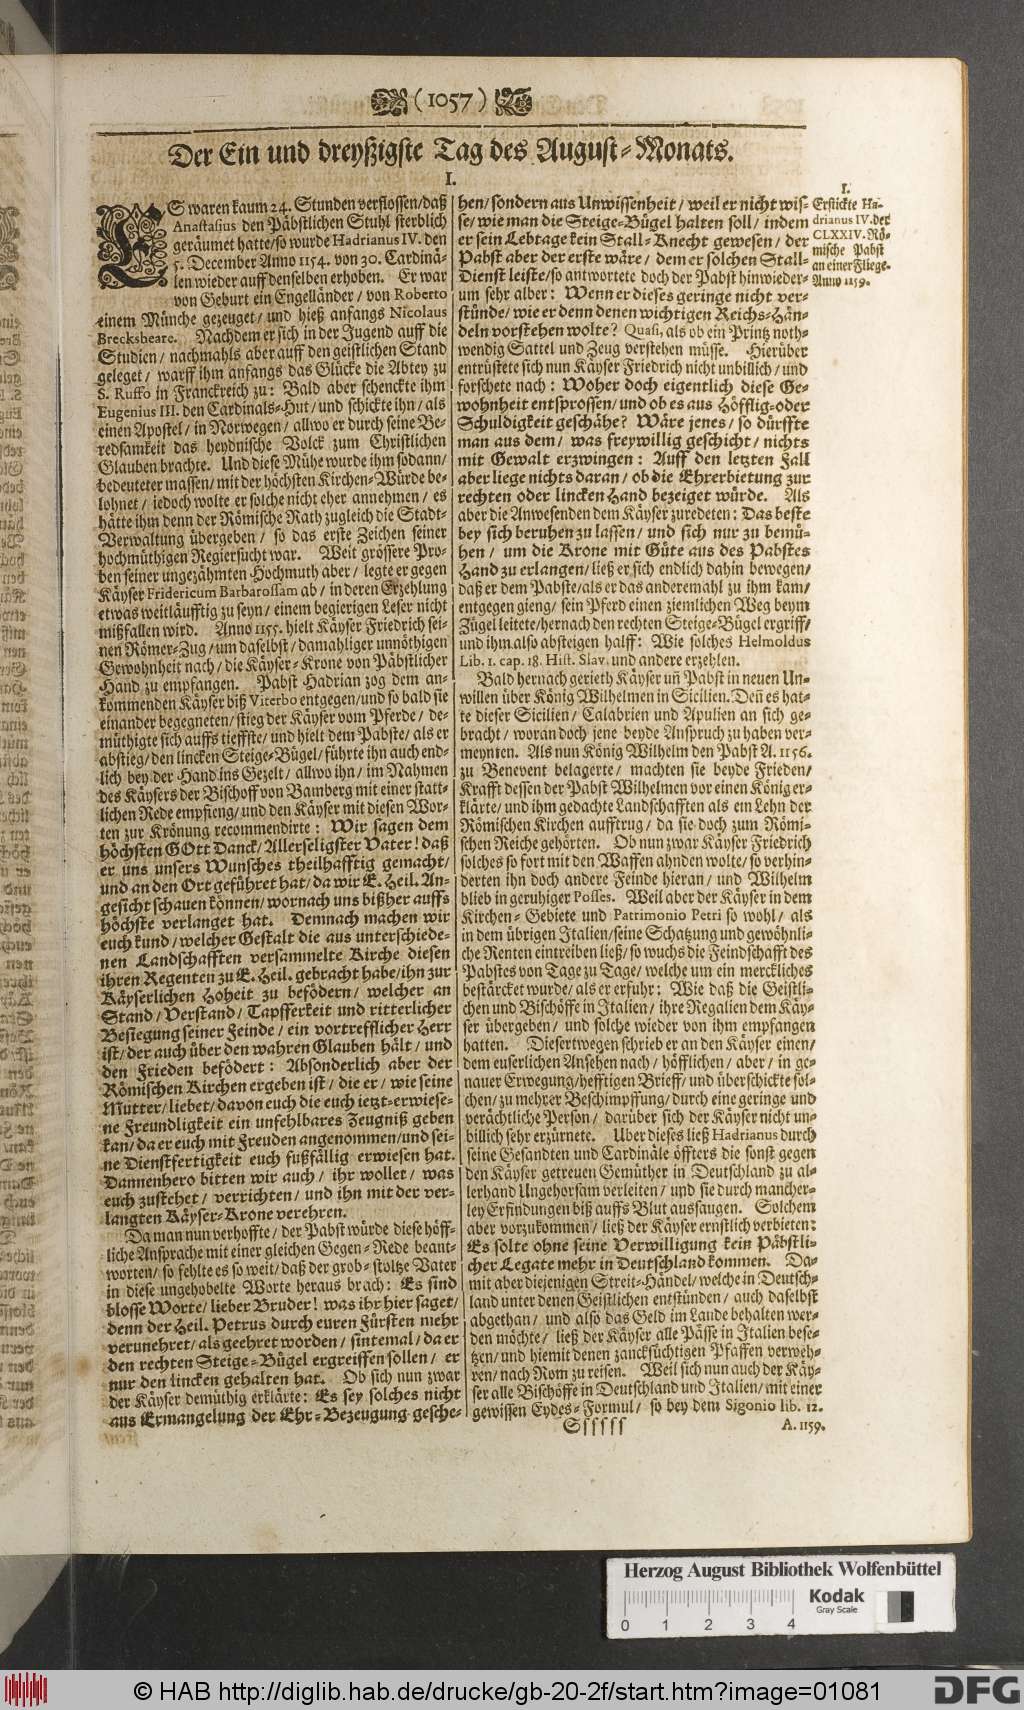 ( 1057 )
Der Ein und dreyßigste Tag des August-Monats.
I.
ES waren kaum 24. Stunden verflossen/daß
Anastasius den Päbstlichen Stuhl sterblich
geräumet hatte/so wurde Hadrianus IV. den
5. December Anno 1154. von 30. Cardinä-
len wieder auff denselben erhoben. Er war
von Geburt ein Engelländer/ von Roberto
einem Münche gezeuget/ und hieß anfangs Nicolaus
Brecksheare. Nachdem er sich in der Jugend auff die
Studien/ nachmahls aber auff den geistlichen Stand
geleget/ warff ihm anfangs das Glücke die Abtey zu
S. Ruffo in Franckreich zu: Bald aber schenckte ihm
Eugenius III. den Cardinals-Hut/ und schickte ihn/ als
einen Apostel/ in Norwegen/ allwo er durch seine Be-
redsamkeit das heydnische Volck zum Christlichen
Glauben brachte. Und diese Mühe wurde ihm sodann/
bedeuteter massen/ mit der höchsten Kirchen-Würde be-
lohnet/ jedoch wolte er solche nicht eher annehmen/ es
hätte ihm denn der Römische Rath zugleich die Stadt-
Verwaltung übergeben/ so das erste Zeichen seiner
hochmüthigen Regiersucht war. Weit grössere Pro-
ben seiner ungezähmten Hochmuth aber/ legte er gegen
Käyser Fridericum Barbarossam ab/ in deren Erzehlung
etwas weitläufftig zu seyn/ einem begierigen Leser nicht
mißfallen wird. Anno 1155. hielt Käyser Friedrich sei-
nen Römer-Zug/ um daselbst/ damahliger unnöthigen
Gewohnheit nach/ die Käyser-Krone von Päbstlicher
Hand zu empfangen. Pabst Hadrian zog dem an-
kommenden Käyser biß Viterbo entgegen/und so bald sie
einander begegneten/ stieg der Käyser vom Pferde/ de-
müthigte sich auffs tieffste/ und hielt dem Pabste/ als er
abstieg/ den lincken Steige-Bügel/ führte ihn auch end-
lich bey der Hand ins Gezelt/ allwo ihn/ im Nahmen
des Käysers der Bischoff von Bamberg mit einer statt-
lichen Rede empfieng/ und den Käyser mit diesen Wor-
ten zur Krönung recommendirte: Wir sagen dem
höchsten GOtt Danck/ Allerseligster Vater! daß
er uns unsers Wunsches theilhafftig gemacht/
und an den Ort geführet hat/ da wir E. Heil. An-
gesicht schauen können/ wornach uns bißher auffs
höchste verlanget hat. Demnach machen wir
euch kund/ welcher Gestalt die aus unterschiede-
nen Landschafften versammelte Kirche diesen
ihren Regenten zu E. Heil. gebracht habe/ ihn zur
Käyserlichen Hoheit zu befödern/ welcher an
Stand/ Verstand/ Tapfferkeit und ritterlicher
Besiegung seiner Feinde/ ein vortrefflicher Herr
ist/ der auch über den wahren Glauben hält/ und
den Frieden befödert: Absonderlich aber der
Römischen Kirchen ergeben ist/ die er/ wie seine
Mutter/ liebet/ davon euch die euch ietzt-erwiese-
ne Freundligkeit ein unfehlbares Zeugniß geben
kan/ da er euch mit Freuden angenommen/und sei-
ne Dienstfertigkeit euch fußfällig erwiesen hat.
Dannenhero bitten wir auch/ ihr wollet/ was
euch zustehet/ verrichten/ und ihn mit der ver-
langten Käyser-Krone verehren.
Da man nun verhoffte/ der Pabst würde diese höff-
liche Ansprache mit einer gleichen Gegen-Rede beant-
worten/ so fehlte es so weit/ daß der grob-stoltze Vater
in diese ungehobelte Worte heraus brach: Es sind
blosse Worte/ lieber Bruder! was ihr hier saget/
denn der Heil. Petrus durch euren Fürsten mehr
verunehret/ als geehret worden/ sintemal/ da er
den rechten Steige-Bügel ergreiffen sollen/ er
nur den lincken gehalten hat. Ob sich nun zwar
der Käyser demüthig erklärte: Es sey solches nicht
aus Ermangelung der Ehr-Bezeugung gesche-
hen/ sondern aus Unwissenheit/ weil er nicht wis-
se/ wie man die Steige-Bügel halten soll/ indem
er sein Lebtage kein Stall-Knecht gewesen/ der
Pabst aber der erste wäre/ dem er solchen Stall-
Dienst leiste/ so antwortete doch der Pabst hinwieder-
um sehr alber: Wenn er dieses geringe nicht ver-
stünde/ wie er denn denen wichtigen Reichs-Hän-
deln vorstehen wolte? Quasi, als ob ein Printz noth-
wendig Sattel und Zeug verstehen müsse. Hierüber
entrüstete sich nun Käyser Friedrich nicht unbillich/ und
forschete nach: Woher doch eigentlich diese Ge-
wohnheit entsprossen/ und ob es aus Höfflig-oder
Schuldigkeit geschähe? Wäre jenes/ so dürffte
man aus dem/ was freywillig geschicht/ nichts
mit Gewalt erzwingen: Auff den letzten Fall
aber liege nichts daran/ ob die Ehrerbietung zur
rechten oder lincken Hand bezeiget würde. Als
aber die Anwesenden dem Käyser zuredeten: Das beste
bey sich beruhen zu lassen/ und sich nur zu bemü-
hen/ um die Krone mit Güte aus des Pabstes
Hand zu erlangen/ ließ er sich endlich dahin bewegen/
daß er dem Pabste/als er das anderemahl zu ihm kam/
entgegen gieng/ sein Pferd einen ziemlichen Weg beym
Zügel leitete/ hernach den rechten Steige-Bügel ergriff/
und ihm also absteigen halff: Wie solches Helmoldus
Lib. 1. cap. 18. Hist. Slav. und andere erzehlen.
Bald hernach gerieth Käyser uñ Pabst in neuen Un-
willen über König Wilhelmen in Sicilien. Deñ es hat-
te dieser Sicilien/ Calabrien und Apulien an sich ge-
bracht/ woran doch jene beyde Anspruch zu haben ver-
meynten. Als nun König Wilhelm den Pabst A. 1156.
zu Benevent belagerte/ machten sie beyde Frieden/
Krafft dessen der Pabst Wilhelmen vor einen König er-
klärte/ und ihm gedachte Landschafften als ein Lehn der
Römischen Kirchen aufftrug/ da sie doch zum Römi-
schen Reiche gehörten. Ob nun zwar Käyser Friedrich
solches so fort mit den Waffen ahnden wolte/ so verhin-
derten ihn doch andere Feinde hieran/ und Wilhelm
blieb in geruhiger Posses. Weil aber der Käyser in dem
Kirchen-Gebiete und Patrimonio Petri so wohl/ als
in dem übrigen Italien/ seine Schatzung und gewöhnli-
che Renten eintreiben ließ/ so wuchs die Feindschafft des
Pabstes von Tage zu Tage/ welche um ein merckliches
bestärcket wurde/ als er erfuhr: Wie daß die Geistli-
chen und Bischöffe in Italien/ ihre Regalien dem Käy-
ser übergeben/ und solche wieder von ihm empfangen
hatten. Diesertwegen schrieb er an den Käyser einen/
dem euserlichen Ansehen nach/ höfflichen/ aber/ in ge-
nauer Erwegung/ hefftigen Brieff/ und überschickte sol-
chen/ zu mehrer Beschimpffung/ durch eine geringe und
verächtliche Person/ darüber sich der Käyser nicht un-
billich sehr erzürnete. Uber dieses ließ Hadrianus durch
seine Gesandten und Cardinäle öffters die sonst gegen
den Käyser getreuen Gemüther in Deutschland zu al-
lerhand Ungehorsam verleiten/ und sie durch mancher-
ley Erfindungen biß auffs Blut aussaugen. Solchem
aber vorzukommen/ ließ der Käyser ernstlich verbieten:
Es solte ohne seine Verwilligung kein Päbstli-
cher Legate mehr in Deutschland kommen. Da-
mit aber diejenigen Streit-Händel/ welche in Deutsch-
land unter denen Geistlichen entstünden/ auch daselbst
abgethan/ und also das Geld im Lande behalten wer-
den möchte/ ließ der Käyser alle Pässe in Italien bese-
tzen/ und hiemit denen zancksüchtigen Pfaffen verweh-
ren/ nach Rom zu reisen. Weil sich nun auch der Käy-
ser alle Bischöffe in Deutschland und Italien/ mit einer
gewissen Eydes-Formul/ so bey dem Sigonio lib. 12.
Ssssss
A. 1159.
I.
Erstickte Ha-
drianus IV. der
CLXXIV. Rö-
mische Pabst
an einer Fliege.
Anno 1159.
Herzog August Bibliothek Wolfenbüttel
Kodak
Gray Scale
0 1 2 3 4
© HAB http://diglib.hab.de/drucke/gb-20-2f/start.htm?image=01081
DFG